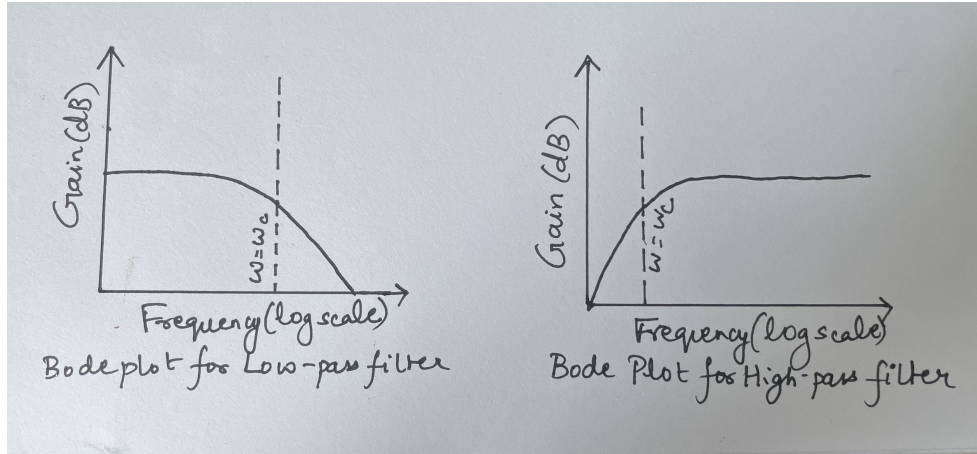 Gain (dB)
ω = ωc
Frequency (log scale)
Bode plot for Low-pass filter
Gain (dB)
ω = ωc
Frequency (log scale)
Bode Plot for High-pass filter